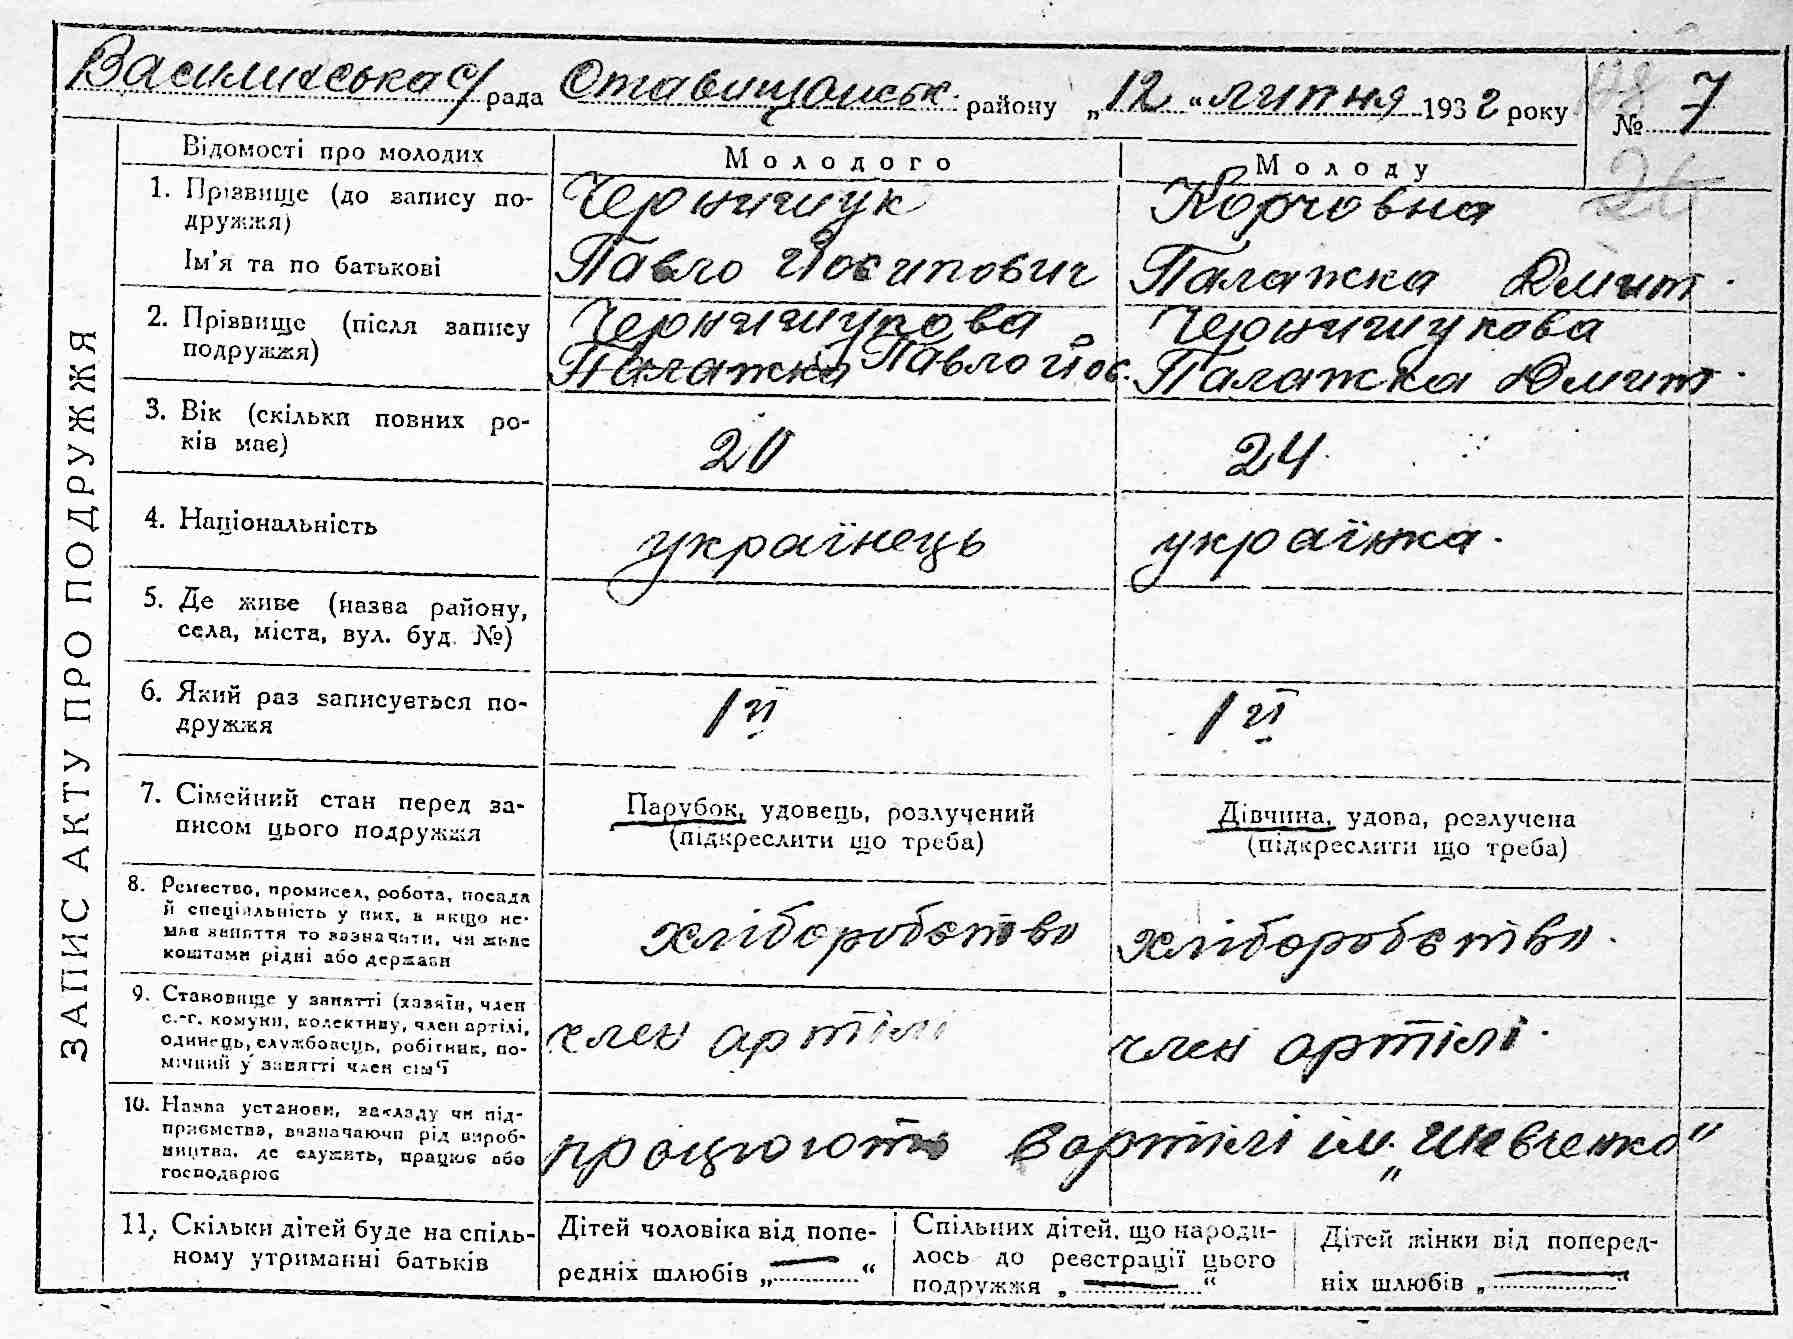 Василиська с/рада Ставищанськ. району „12“ липня 1932 року № 7
ЗАПИС АКТУ ПРО ПОДРУЖЖЯ
Відомості про молодих
Молодого
Молоду
1. Прізвище (до запису по-
дружжя)
Ім’я та по батькові
Чернишук
Павло Йосипович
Корчовна
Палажка Дмит.
2. Прізвище (після запису
подружжя)
Чернишукова
Палажка Павло Йос.
Чернишукова
Палажка Дмит.
3. Вік (скільки повних ро-
ків має)
20
24
4. Національність
українець
українка.
5. Де живе (назва району,
села, міста, вул. буд. №)
6. Який раз записується по-
дружжя
1й
1й
7. Сімейний стан перед за-
писом цього подружжя
Парубок, удовець, розлучений
(підкреслити що треба)
Дівчина, удова, розлучена
(підкреслити що треба)
8. Ремество, промисел, робота, посада
й спеціяльність у них, а якщо не-
має заняття то зазначити, чи живе
коштами рідні або держави
хліборобство
хліборобство.
9. Становище у занятті (хазяїн, член
с.-г. комуни, колективу, член артілі,
одинець, службовець, робітник, по-
мічний у занятті член сім’ї
член артілі
член артілі.
10. Назва установи, закладу чи під-
приємства, визначаючи рід вироб-
ництва, де служить, працює або
господарює
працюють в артілі ім. „Шевченко“
11. Скільки дітей буде на спіль-
ному утриманні батьків
Дітей чоловіка від попе-
редніх шлюбів „—“
Спільних дітей, що народи-
лось до реєстрації цього
подружжя „—“
Дітей жінки від поперед-
ніх шлюбів „—“